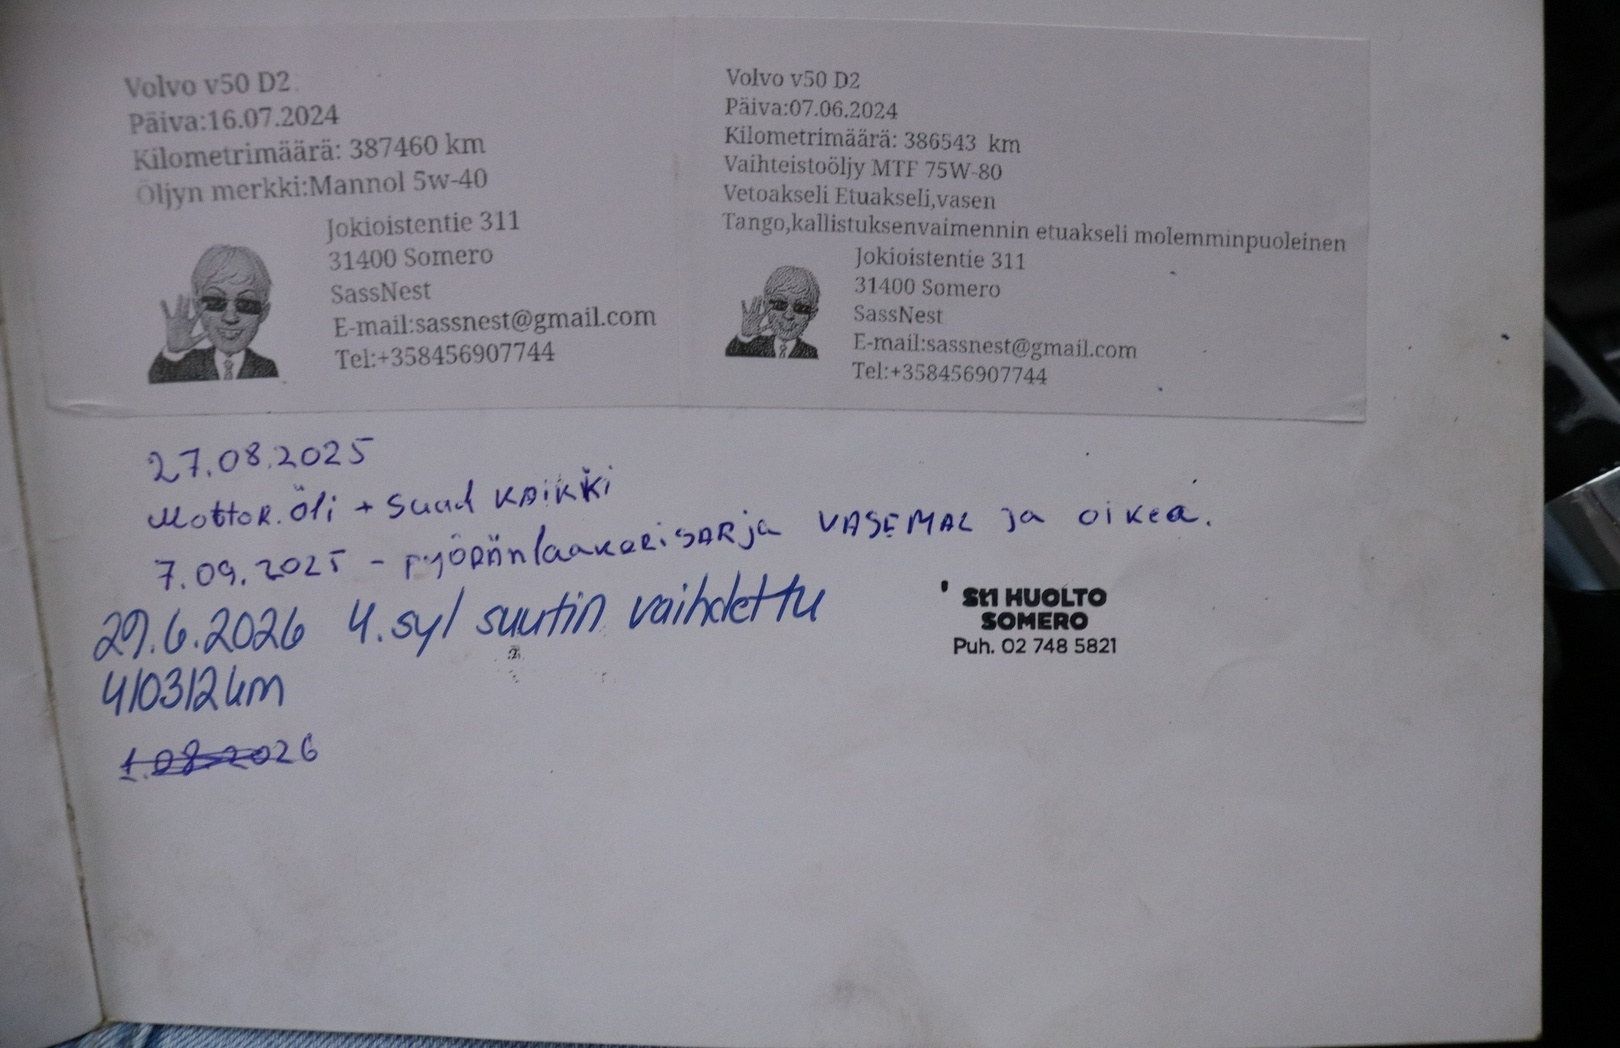 Volvo v50 D2
Päiva:16.07.2024
Kilometrimäärä: 387460 km
Öljyn merkki:Mannol 5w-40
Jokioistentie 311
31400 Somero
SassNest
E-mail:sassnest@gmail.com
Tel:+358456907744
Volvo v50 D2
Päiva:07.06.2024
Kilometrimäärä: 386543 km
Vaihteistoöljy MTF 75W-80
Vetoakseli Etuakseli,vasen
Tango,kallistuksenvaimennin etuakseli molemminpuoleinen
Jokioistentie 311
31400 Somero
SassNest
E-mail:sassnest@gmail.com
Tel:+358456907744
27.08.2025
Mottor. Öli + Suad KAIKKi
7.09.2025 - PYÖRÄnlaakeriSARja VASEMAL ja oikea.
29.6.2026 4.syl suutin vaihdettu
410312km
St1 HUOLTO
SOMERO
Puh. 02 748 5821
1.08.2026